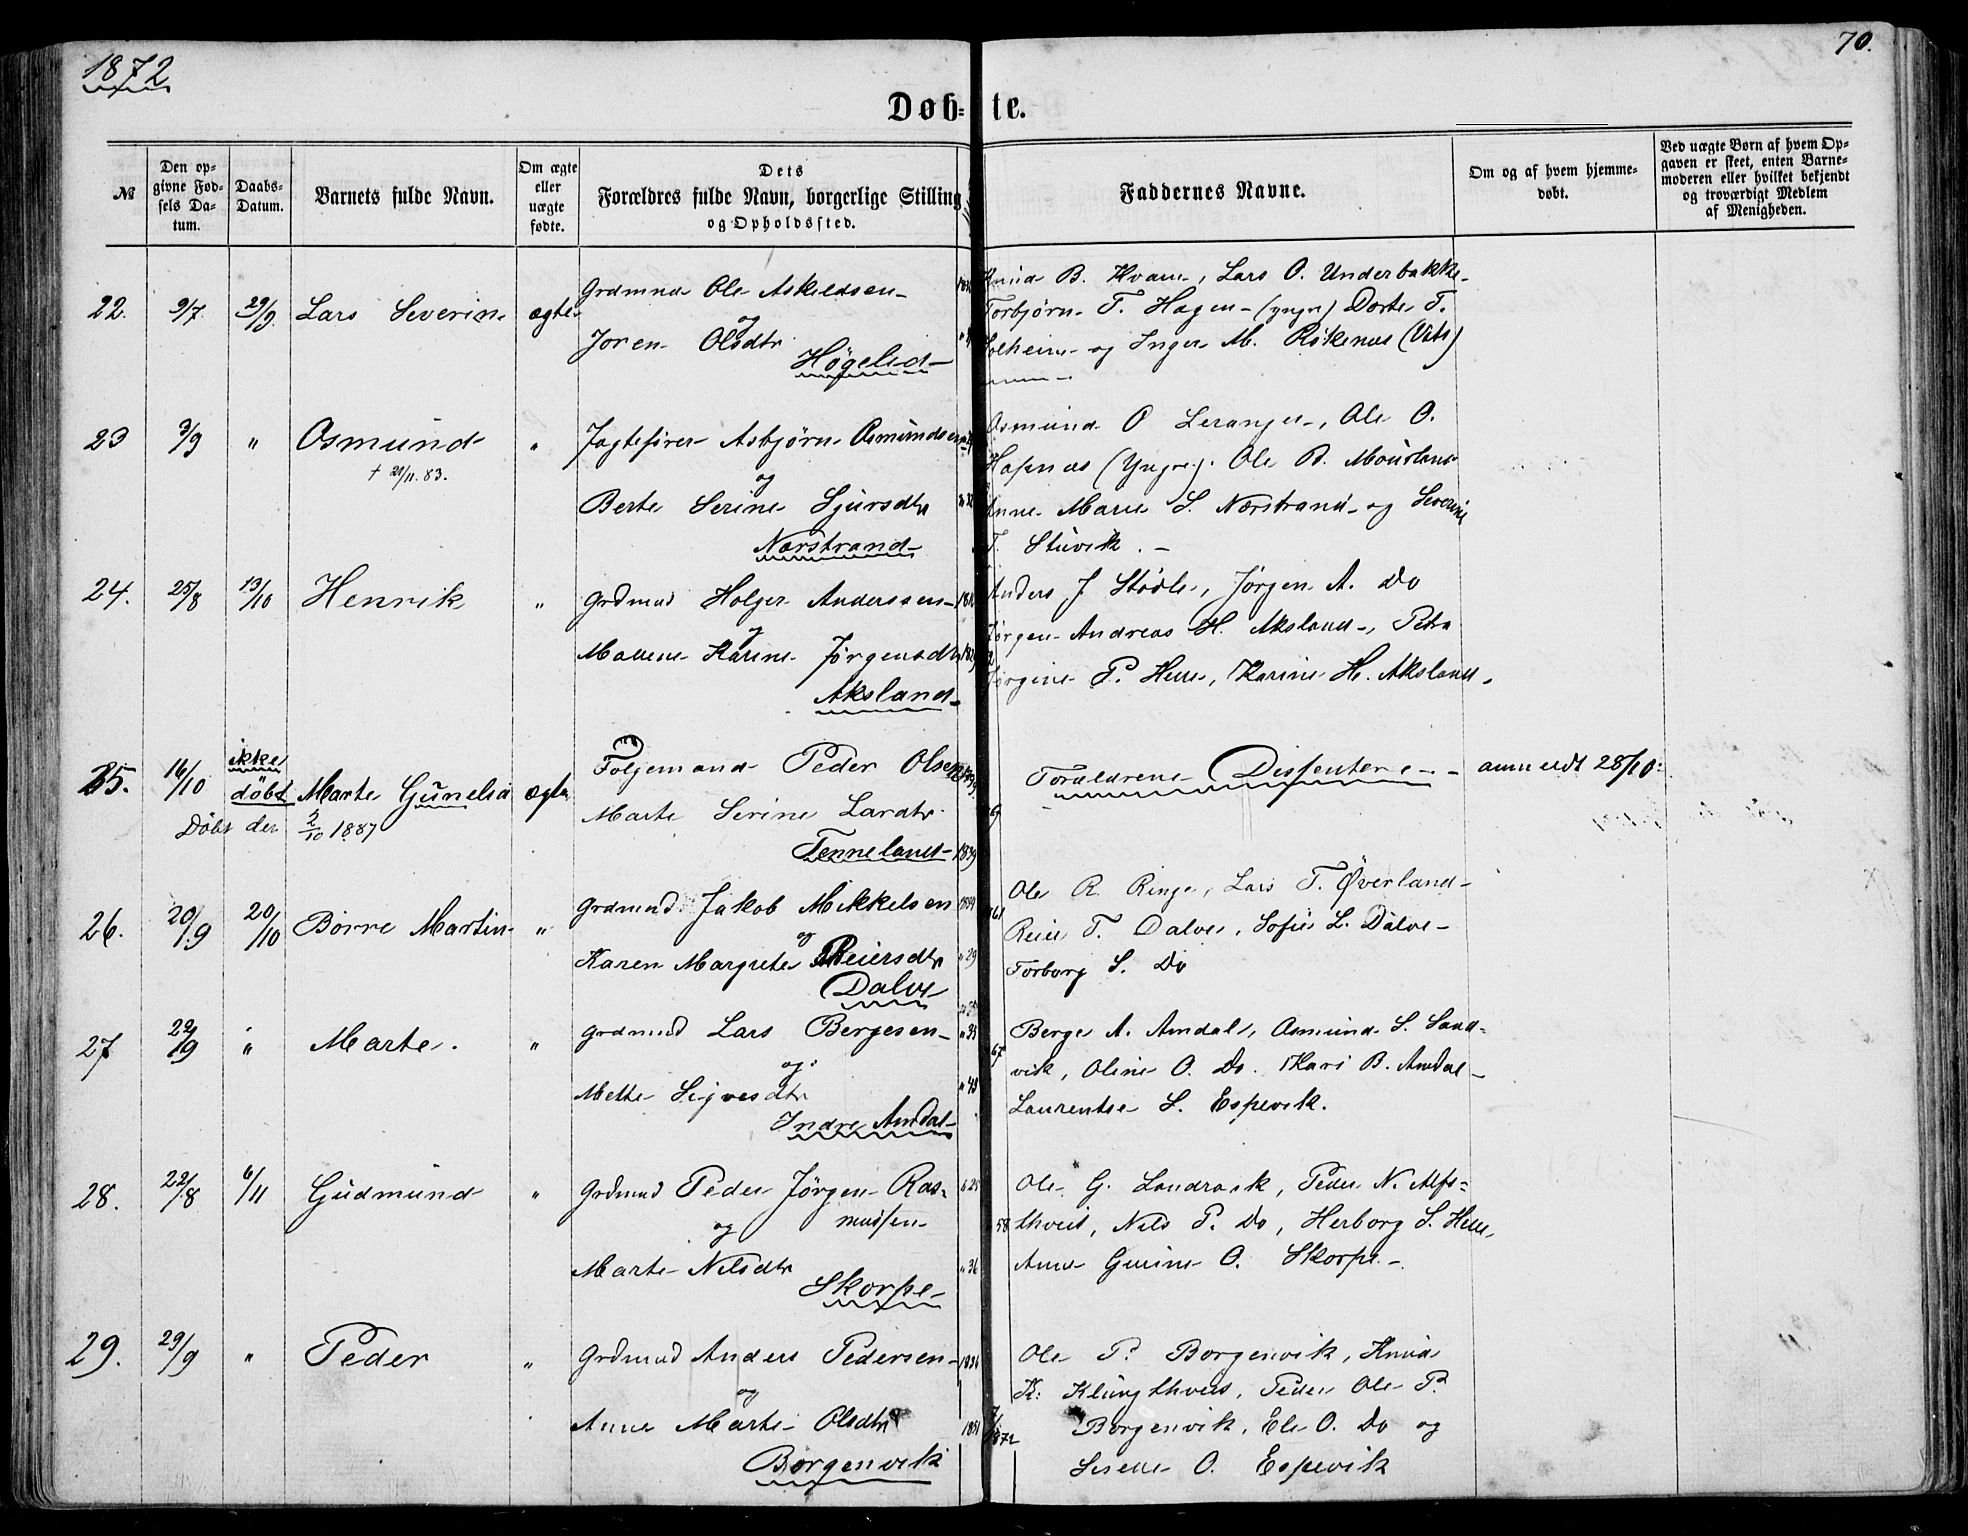 1872
70.
Døb-te.
№
Den op-
givne Fød-
sels Da-
tum.
Daabs-
Datum.
Barnets fulde Navn.
Om ægte
eller
uægte
fødte.
Dets
Forældres fulde Navn, borgerlige Stilling
og Opholdssted.
Faddernes Navne.
Om og af hvem hjemme-
døbt.
Ved uægte Børn af hvem Op-
gaven er skeet, enten Barne-
moderen eller hvilket bekjendt
og troværdigt Medlem
af Menigheden.
22. 9/7. 29/9. Lars Severin ægte
Grdmnd Ole Askildsen
og
Joren Olsdtr
Högelid
Knud B. Kvam, Lars O. Underbakke
Torbjørn T. Hagen (yngr) Dorte T.
Solheim og Inger M. Rökenæs (Vats)
23 3/9 " Osmund "
† 21/11.83.
Jagtefører Asbjørn Osmundsen
og
Berte Serine Sjursdtr
Nærstrand
Osmund O Leranger, Ole O.
Hapnæs (Yngre). Ole B.
Anne Marie S. Nærstrand og Severine
T. Stuvik.
24. 25/8 13/10 Henrik "
Grdmnd Holger Anderssen
og
Malene Karine Jørgensdtr
Aksland
Anders J Stödle, Jørgen A. Do
Jørgen Andreas H. Aksland, Petra
Jørgine P. Helle, Karine H. Aksland.
25. 16/10 ikke
döbt Marte Gunelia ægte
Döbt den 2/10 1887
Folgemand Peder Olsen
Marte Serine Larsdtr
Tenneland 1839
Forældrene Dissentere
anmeldt 28/10
26. 20/9 20/10 Börre Martin "
Grdmnd Jakob Mikkelsen
og
Karen Margrete Reiersdtr "29
Dalve
Ole R. Ringe, Lars T. Øverland
Reier T. Dalve, Sofie L. Dalve
Torborg S. Do
27 22/9 " Marte. "
Grdmnd Lars Bergesen "35
og
Mette Sigvesdtr "43
Indre Amdal
67
Berge A. Amdal, Osmund S. Sand-
vik, Oline O. Do. Kari B. Amdal
Laurentse S. Espevik.
28. 22/8 6/11 Gudmund "
Grdmnd Peder Jörgen Ras- "25
mussen
og
Marte Nilsdtr "36
Skorpe
58
Ole G. Landraak, Peder N. Alfs-
thveit, Nils P. Do, Herborg S. Helle,
Anne Gurine O. Skorpe.
29. 29/9 " Peder "
Grdmnd Anders Pedersen
og
Anne Marte Olsdtr 1851
Borgenvik
1872
Ole P. Borgenvik, Knud
K. Klungthveit, Peder Ole P.
Borgenvik, Eli O. Do og
Liselle O. Espevik